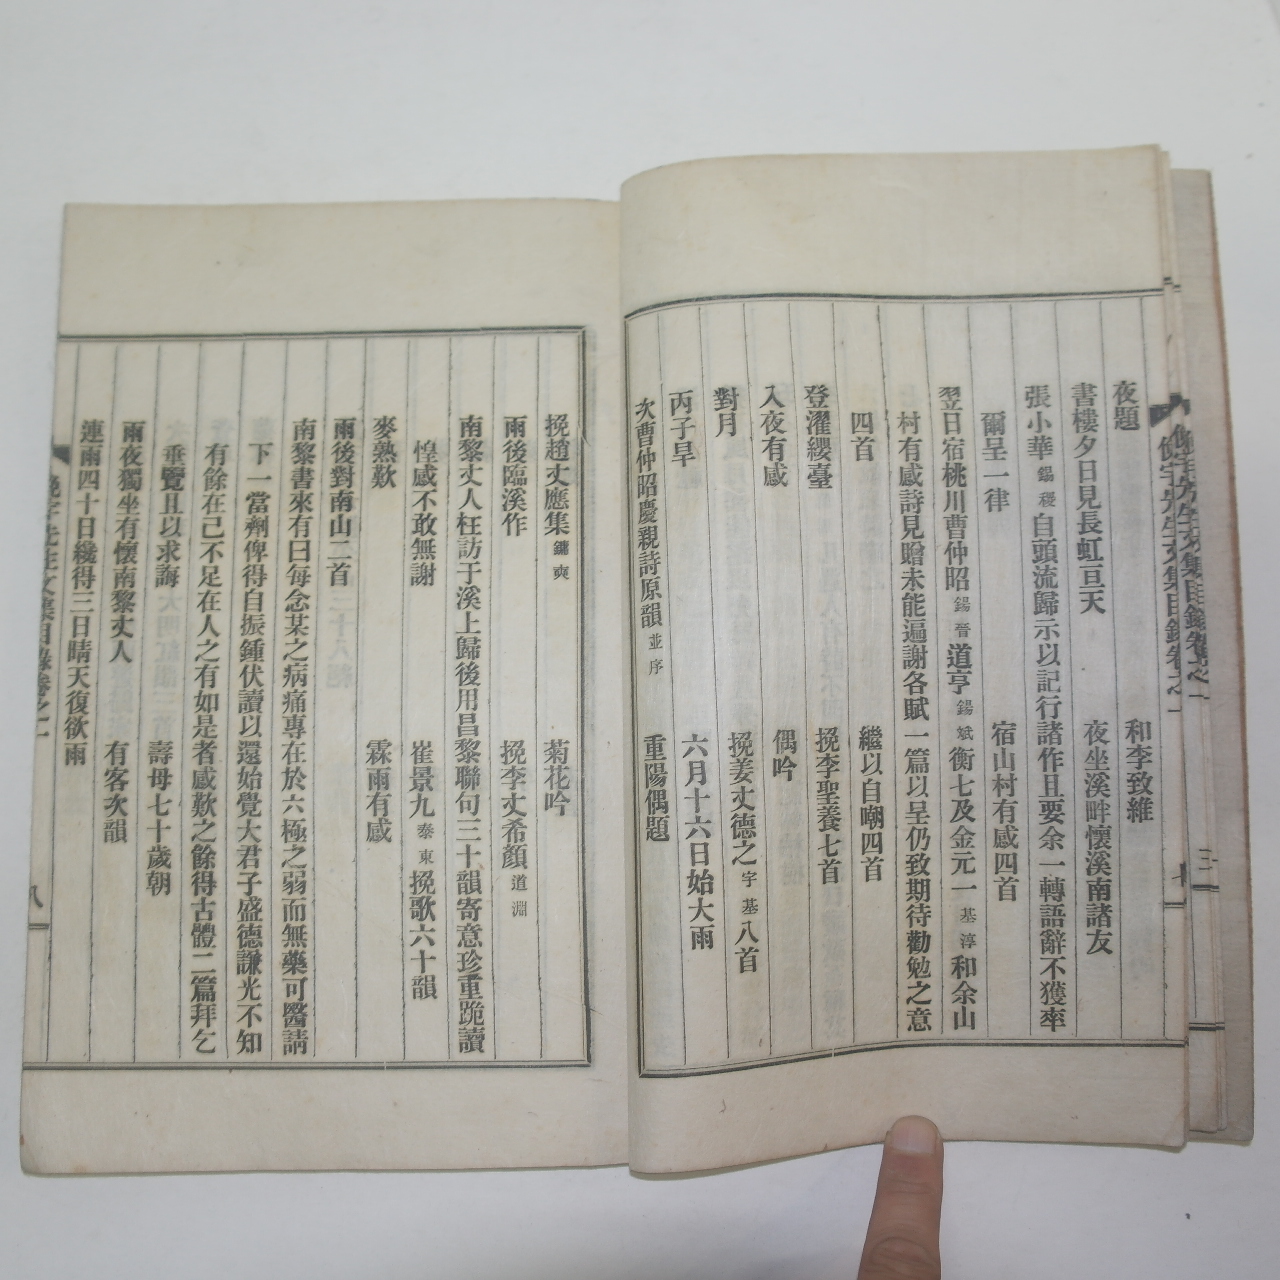 夜題 和李致維
書樓夕日見長虹亘天 夜坐溪畔懷溪南諸友
張小華錫稷自頭流歸示以記行諸作且要余一轉語辭不獲率
爾呈一律 宿山村有感四首
翌日宿桃川曹仲昭錫晉道亨錫斌衡七及金元一基淳和余山
村有感詩見贈未能遍謝各賦一篇以呈仍致期待勸勉之意
四首 繼以自嘲四首
登濯纓臺 挽李聖養七首
入夜有感 偶吟
對月 挽姜丈德之字基八首
丙子旱 六月十六日始大雨
次曹仲昭慶親詩原韻並序 重陽偶題
挽趙丈應集鏞奭 菊花吟
雨後臨溪作 挽李丈希顏道淵
南黎丈人枉訪于溪上歸後用昌黎聯句三十韻寄意珍重跪讀
惶感不敢無謝 崔景九泰東挽歌六十韻
麥熟歎 霖雨有感
雨後對南山二首
南黎書來有曰每念某之病痛專在於六極之弱而無藥可醫請
下一當劑俾得自振鍾伏讀以還始覺大君子盛德謙光不知
有餘在己不足在人之有如是者感歎之餘得古體二篇拜乞
垂覽且以求誨 壽母七十歲朝
雨夜獨坐有懷南黎丈人 有客次韻
連雨四十日纔得三日晴天復欲雨
先生文集目錄卷之一
八